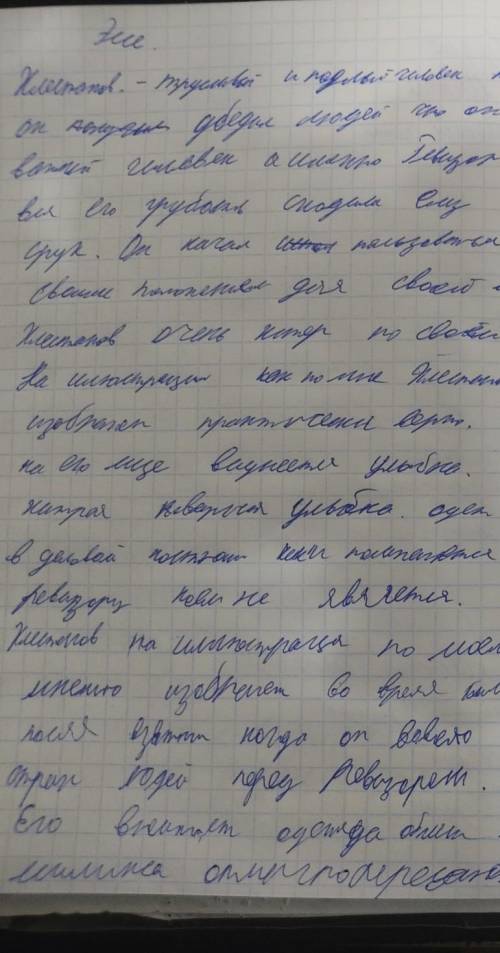 Эсе.
Хлестаков. - трусливый и подлый человек
он убедил людей что он
важный человек а именно Ревизор
вся его грубость сходила ему
срук. Он начал пользоваться
своим положением для своей
Хлестаков очень хитер по своей
На илюстрации как по мне Хлестаков
изображен практически верно.
на его лице виднеется улыбка.
хитрая улыбка. одет
в деловой костюм как полагается
ревизору коем не является.
Хлестаков на илюстраци по моему
мнению изображен во время
после взятки когда он
страх людей перед Ревизорем.
Его одежда